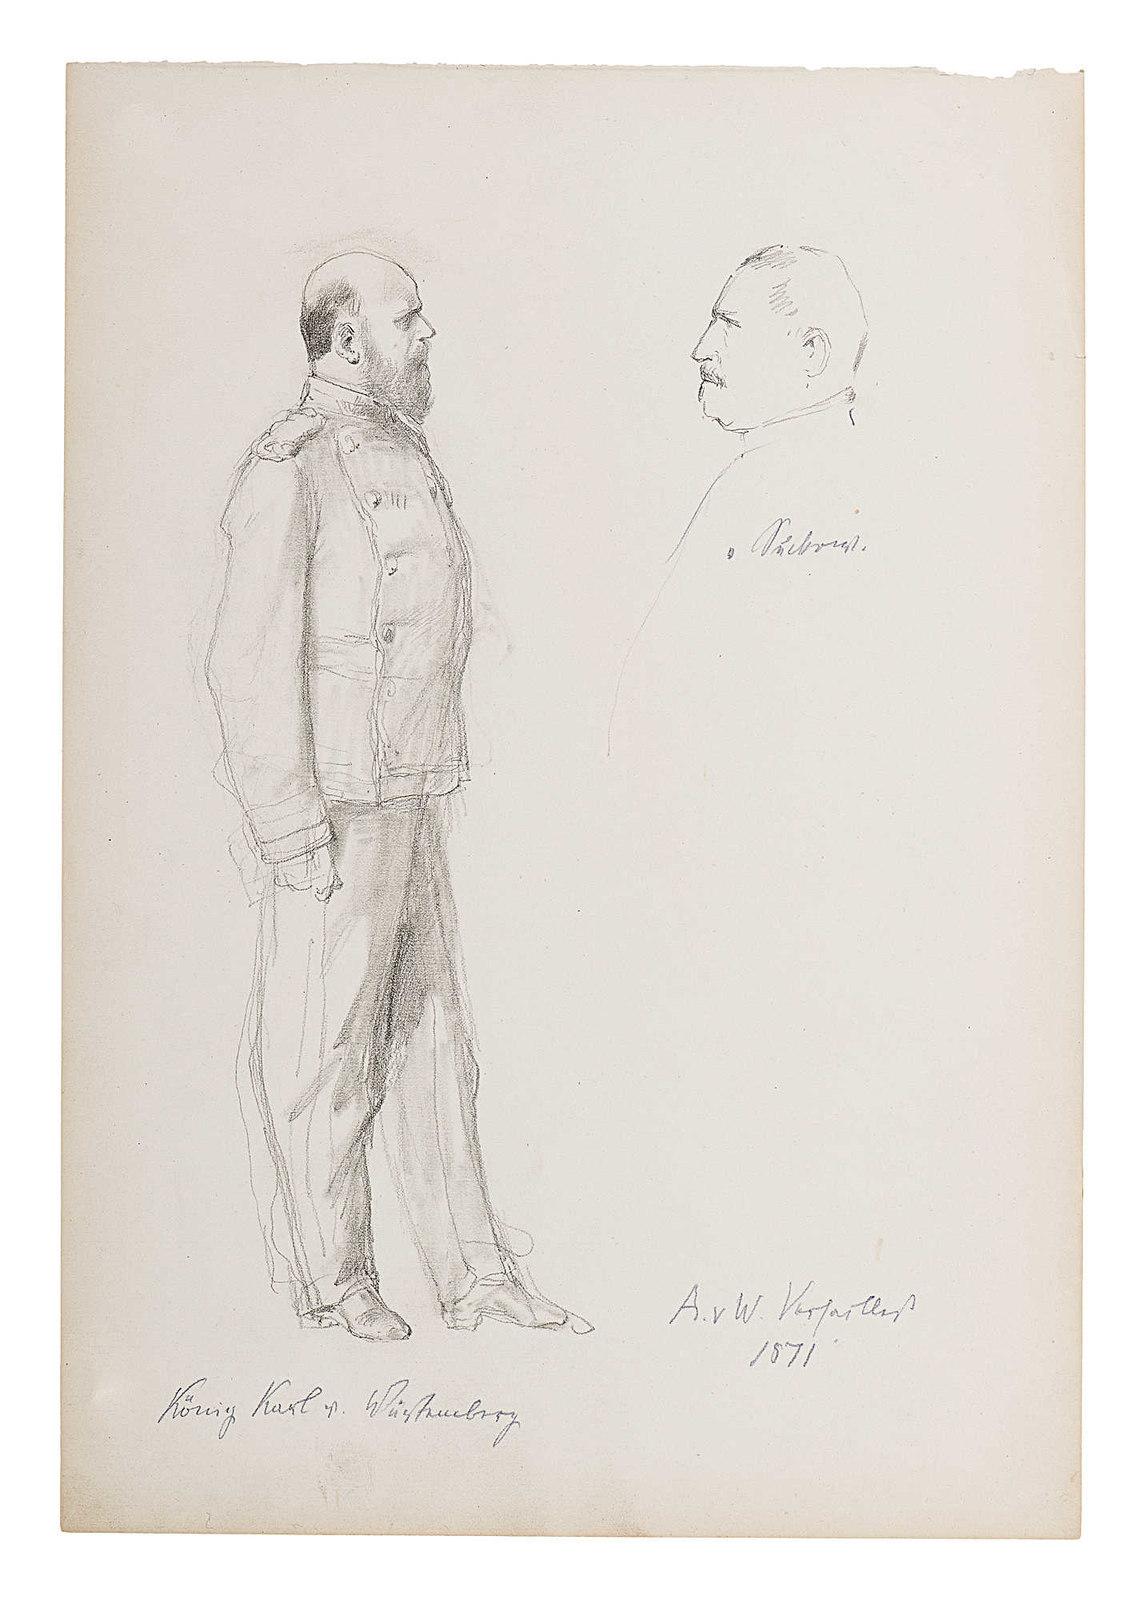 v Suckow.
A. v W. Versailles
1871
König Karl v. Württemberg